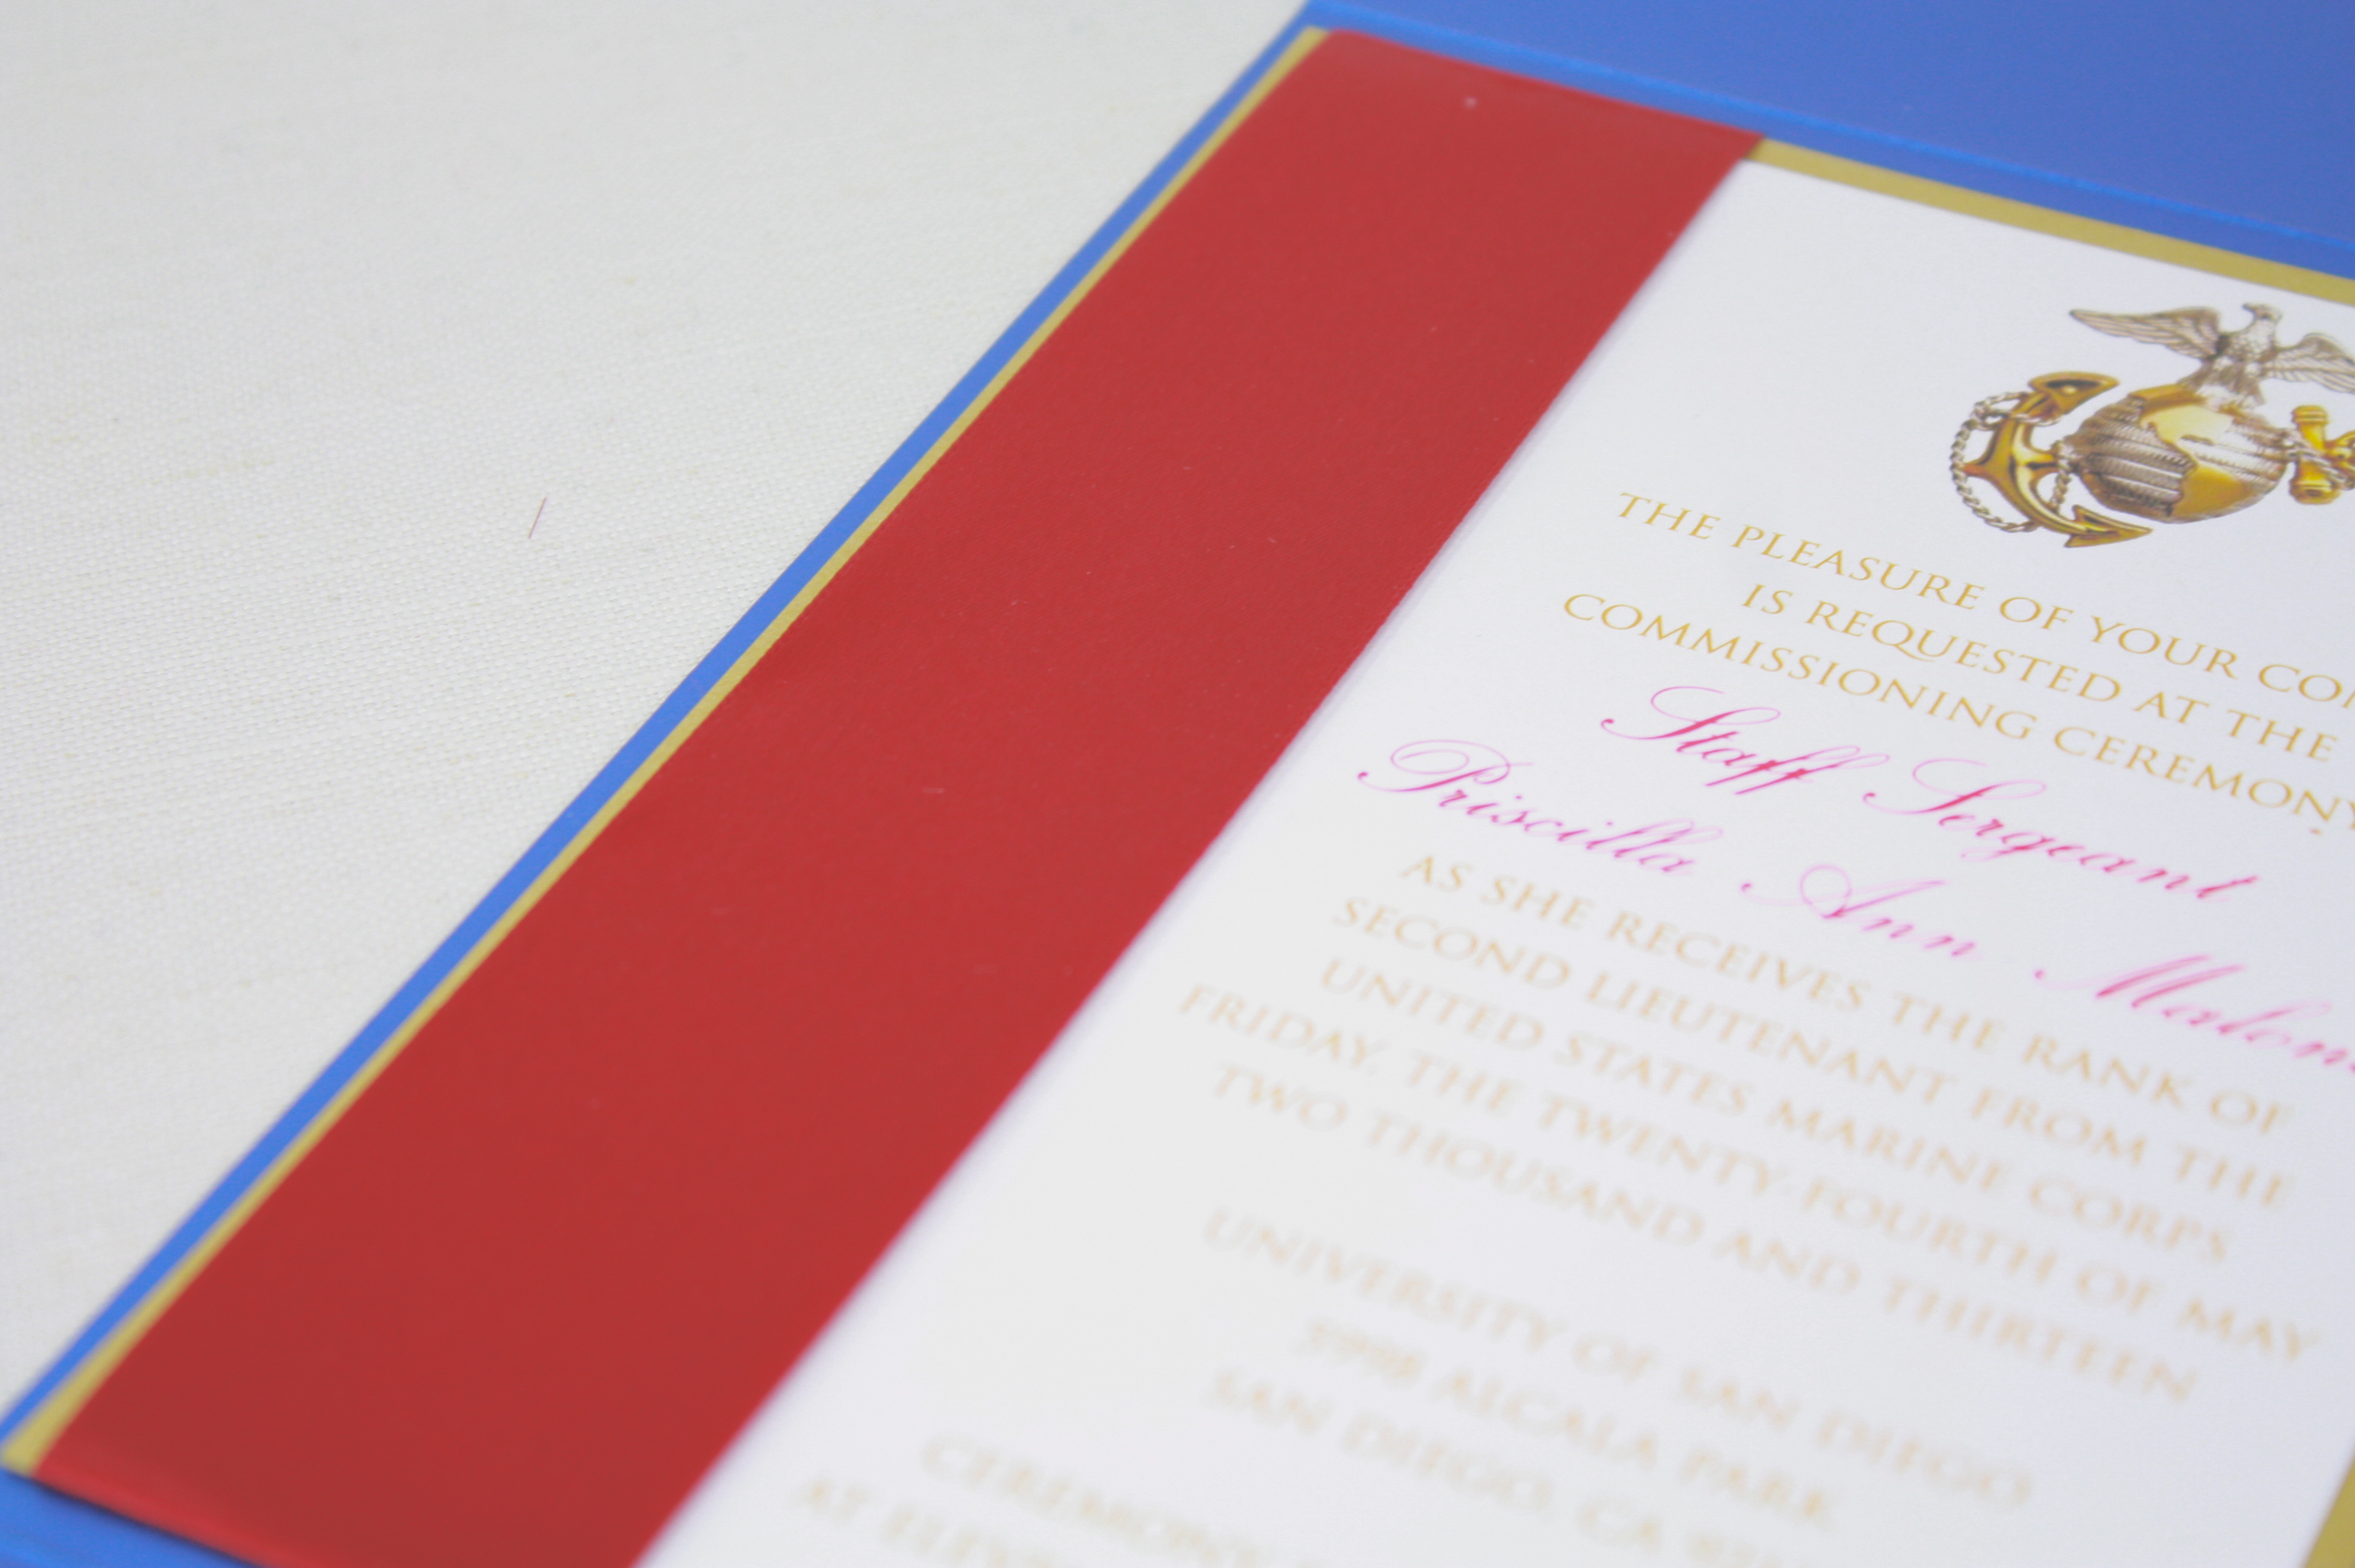 THE PLEASURE OF YOUR
IS REQUESTED AT THE
COMMISSIONING CEREMONY
Staff Sergeant
Priscilla Ann
AS SHE RECEIVES THE RANK OF
SECOND LIEUTENANT FROM THE
UNITED STATES MARINE CORPS
FRIDAY, THE TWENTY-FOURTH OF MAY
TWO THOUSAND AND THIRTEEN
UNIVERSITY OF SAN DIEGO
5998 ALCALA PARK
SAN DIEGO, CA
CEREMONY
AT